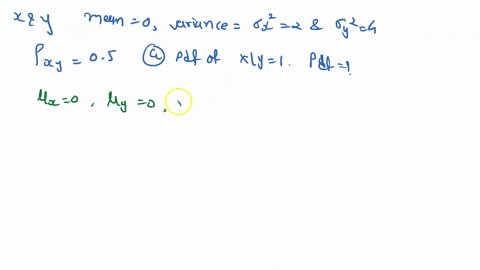 x & y mean = 0, variance = σx² = 2 & σy² = 4
ρxy = 0.5 (a) Pdf of x|y = 1. Pdf = !
μx = 0, μy = 0,